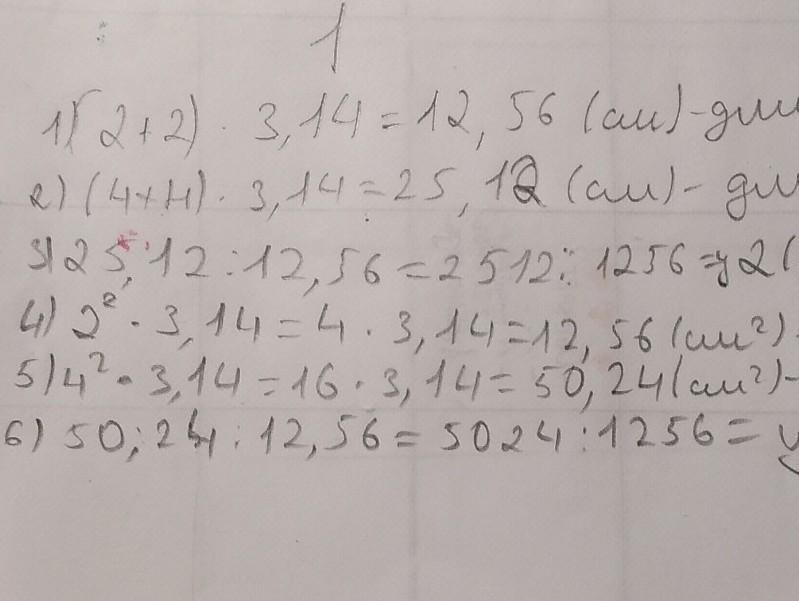 1
1) (2+2) · 3,14 = 12,56 (см) -
2) (4+4) · 3,14 = 25,12 (см) -
3) 25,12 : 12,56 = 2512 : 1256 = 2 (
4) 2² · 3,14 = 4 · 3,14 = 12,56 (см²)
5) 4² · 3,14 = 16 · 3,14 = 50,24 (см²) -
6) 50,24 : 12,56 = 5024 : 1256 =